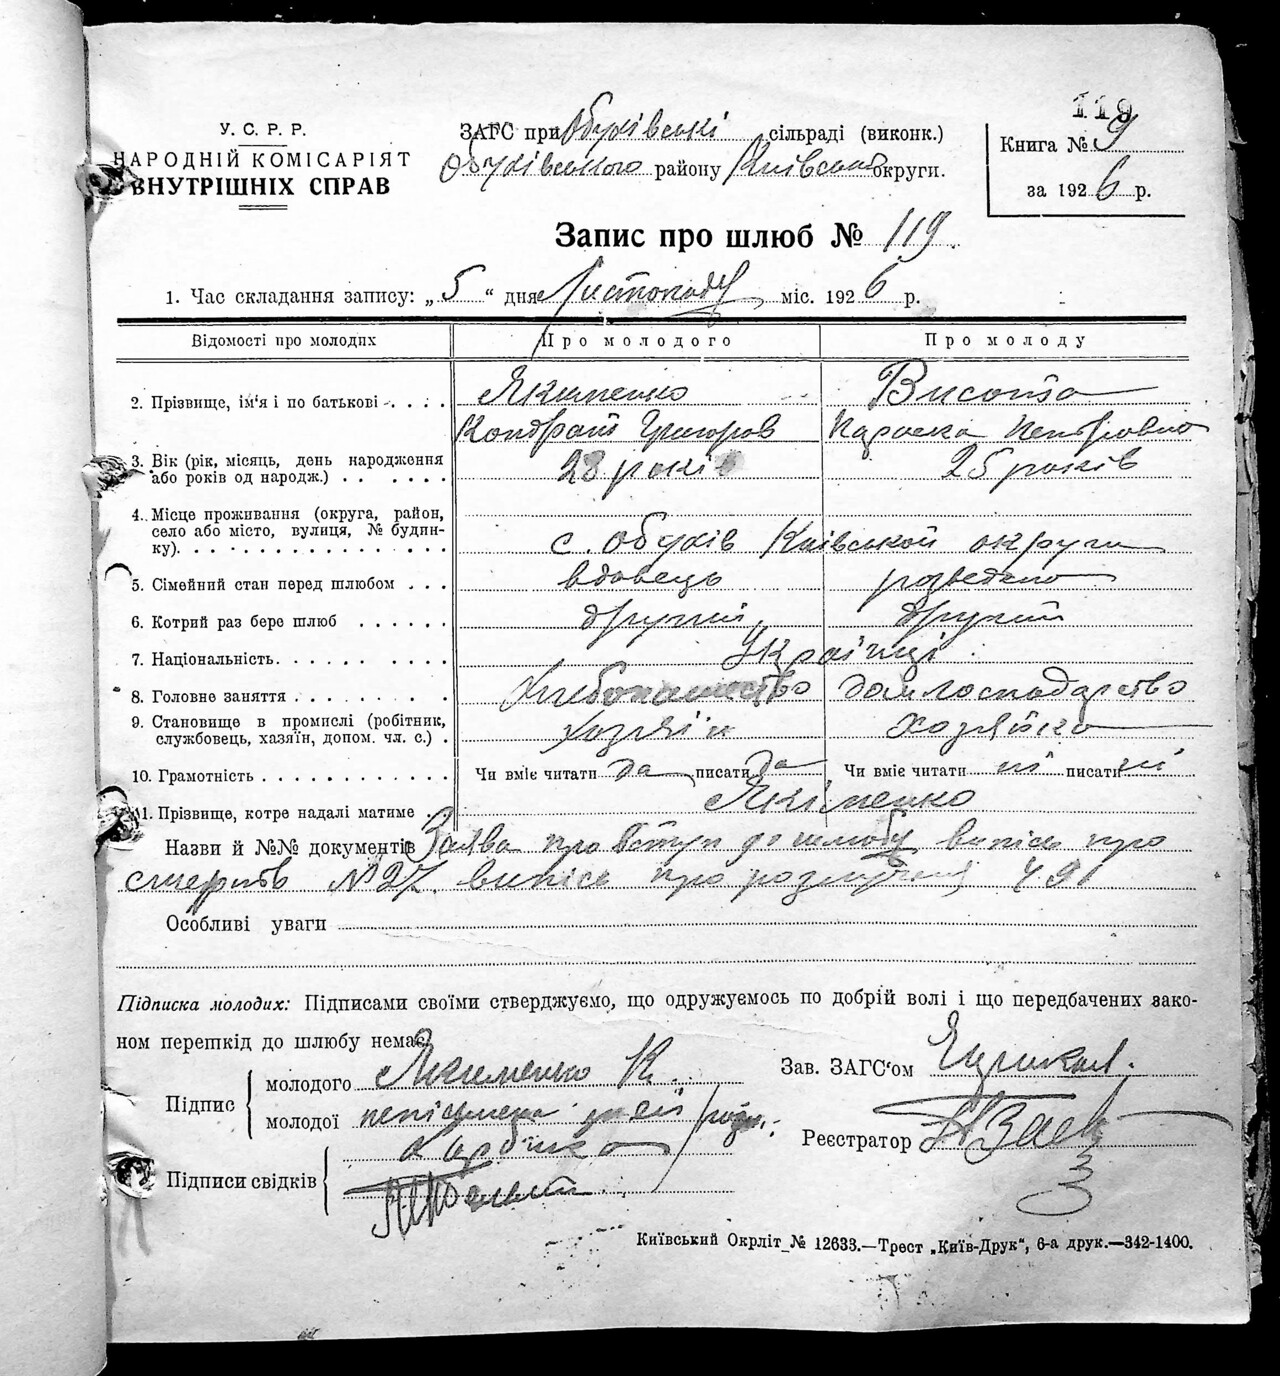 119
У. С. Р. Р.
НАРОДНІЙ КОМІСАРІЯТ
ВНУТРІШНІХ СПРАВ
ЗАГС при Обухівські сільраді (виконк.)
Обухівського району Київської округи.
Книга № 9
за 1926 р.
Запис про шлюб № 119.
1. Час складання запису: „5“ дня Листопада міс. 1926 р.
Відомості про молодих Про молодого Про молоду
2. Прізвище, ім'я і по батькові Якименко Висота
Кондрат Григоров Параска Петровна
3. Вік (рік, місяць, день народження 28 років 25 років
або років од народж.)
4. Місце проживання (округа, район,
село або місто, вулиця, № будин-
ку). с. Обухів Київської округи
5. Сімейний стан перед шлюбом вдовець розведена
6. Котрий раз бере шлюб другий другий
7. Національність. Українці
8. Головне заняття Хлібопашество домгосподарство
9. Становище в промислі (робітник,
службовець, хазяїн, допом. чл. с.) Хозяїн хозяйка
10. Грамотність Чи вміє читати да писати да Чи вміє читати ні писати ні
11. Прізвище, котре надалі матиме Якіменко
Назви й №№ документів Заява про вступ до шлюбу випісь про
смерть №27. випісь про розлучення
Особливі уваги
Підписка молодих: Підписами своїми стверджуємо, що одружуємось по добрій волі і що передбачених зако-
ном перешкід до шлюбу немає.
Підпис молодого Якименко К.
молодої неписьмена
Підписи свідків
Зав. ЗАГС'ом
Реєстратор
Київський Окрліт № 12633.—Трест „Київ-Друк“, 6-а друк.—342-1400.